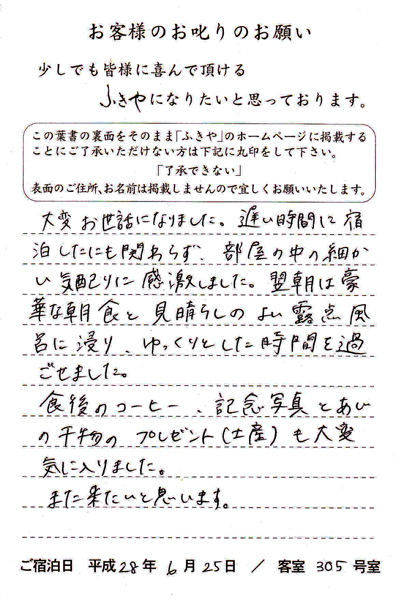 お客様のお叱りのお願い
少しでも皆様に喜んで頂ける
ふきやになりたいと思っております。
この葉書の裏面をそのまま「ふきや」のホームページに掲載する
ことにご了承いただけない方は下記に丸印をして下さい。
「了承できない」
表面のご住所、お名前は掲載しませんので宜しくお願いいたします。
大変お世話になりました。遅い時間に宿
泊したにも関わらず、部屋の中の細か
い気配りに感激しました。翌朝は豪
華な朝食と見晴らしのよい露天風
呂に浸り、ゆっくりとした時間を過
ごせました。
食後のコーヒー、記念写真とあじ
の干物のプレゼント(土産)も大変
気に入りました。
また来たいと思います。
ご宿泊日 平成28年 6月25日 / 客室 305号室